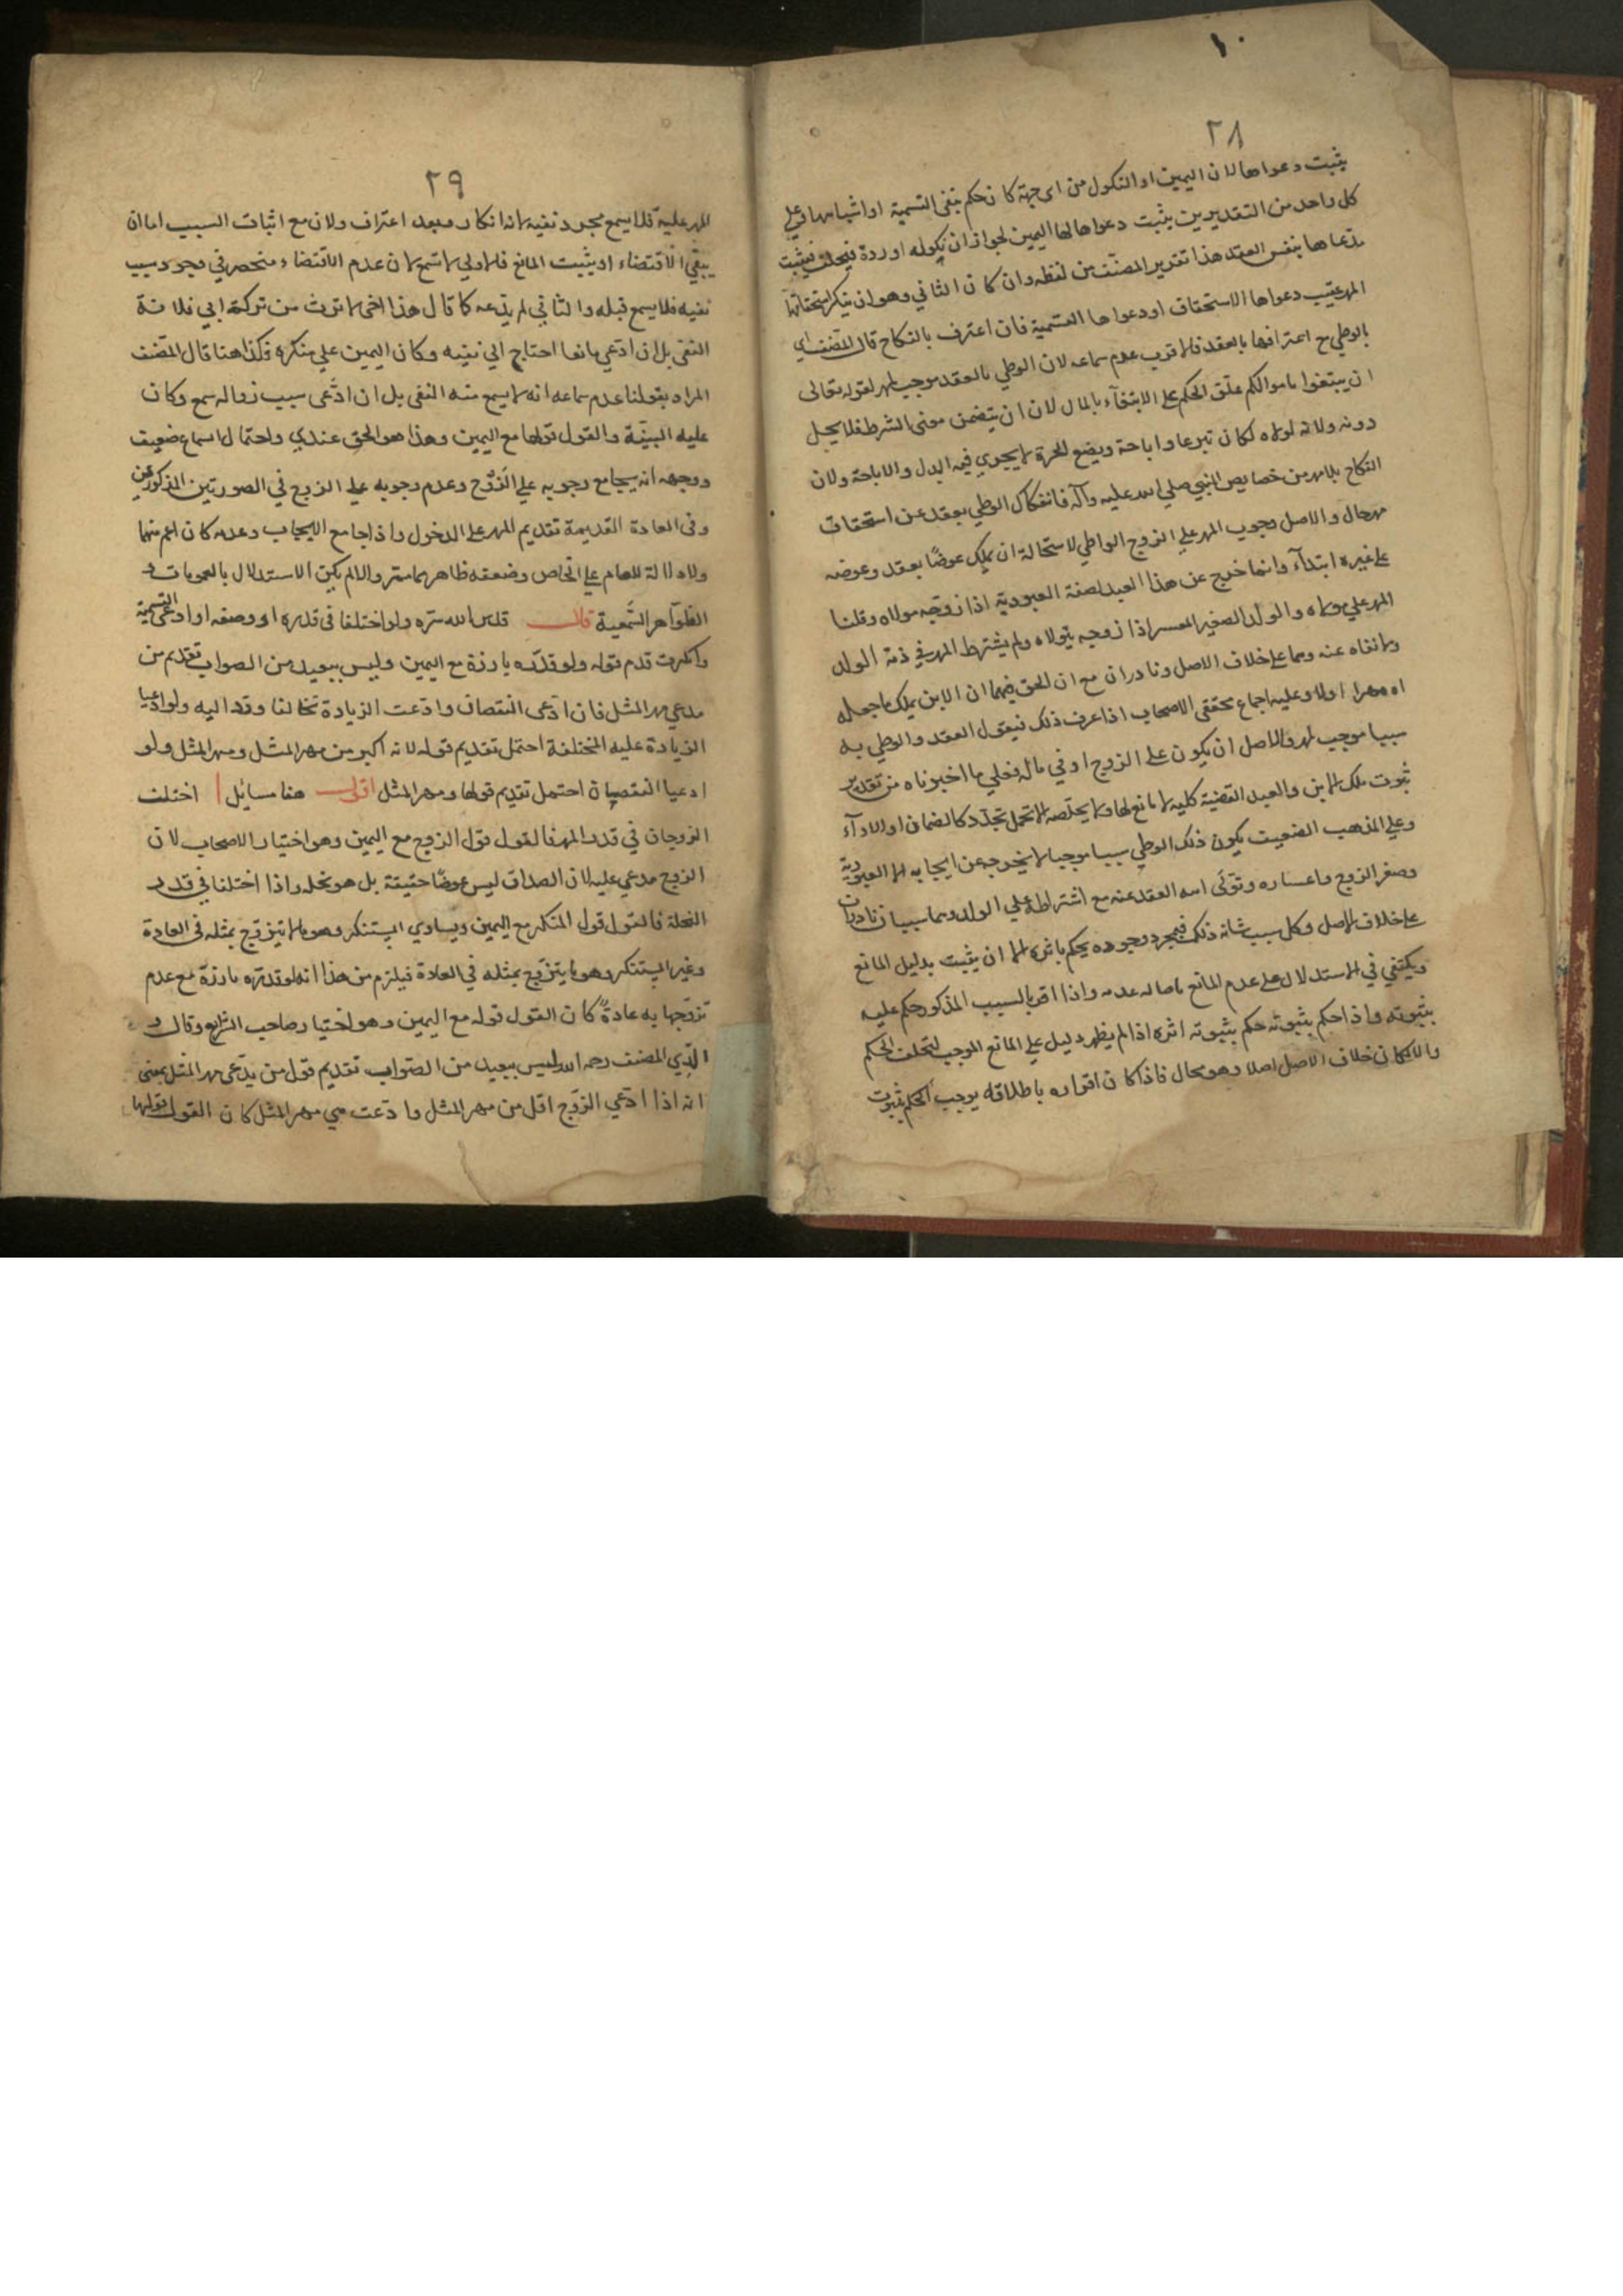 ١٠
٢٨
يثبت دعواها لان اليمين او النكول من اى جهة كان حكم بنفى التسمية او اثباتها وعلى
كل واحد من التقديرين يثبت دعواها لها اليمين لجواز ان نكوله او ردة فيحلف فيثبت
مدعاها بنفس العقد هذا تقرير المصنف من لفظه وان كان الثاني وهو ان ينكر استحقاقها
المهر عقيب دعواها الاستحقاق او دعواها التسمية فان اعترف بالنكاح قال المصنف اي
بالوطي مع اعترافها بالعقد فالاقرب عدم سماعه لان الوطي بالعقد موجب للمهر لقوله تعالى
ان يبتغوا باموالكم علق الحكم على الابتغآء بالمال لان ان يتضمن معنى الشرط فلا يحل
دونه ولانه لولاه لكان تبرعا واباحة وبضع الحرة لا يجري فيه البدل والاباحة ولان
النكاح بلا مهر من خصايص النبي صلى الله عليه وآله فانفكاك الوطي بعقد عن استحقاق
مهر محال والاصل وجوب المهر على الزوج الواطي لاستحالة ان يملك عوضًا بعقد وعوضه
على غيره ابتدآء وانما خرج عن هذا العبد لصفة العبودية اذا زوجه مولاه وقلنا
المهر على مولاه والولد الصغير المعسر اذا زوجه بتولاه ولم يشترط المهر في ذمة الولد
ولا نفاه عنه وهما على خلاف الاصل ونادران مع ان الحق فيهما ان الابن يملك ما جعله
اه مهرا اولا وعليه اجماع محققى الاصحاب اذا عرف ذلك فيقول العقد والوطي به
سببا موجب للمهر والاصل ان يكون على الزوج او في ماله فعلى ما اخبرناه من تقدير
ثبوت ملك الابن والعبد القضية كلية لا مانع لها ولا يخلصه الا تحمل تجدد كالضمان او الادآء
وعلى المذهب الضعيف يكون ذلك الوطي سببا موجبا لا يخرجه عن ايجابه الا العبودية
وصغر الزوج واعساره وتولى اسه العقد عنه مع اشتراطه على الولد وهما سببان نادران
على خلاف الاصل وكل سبب شانه ذلك فبمجرد وجوده يحكم باثره الا ان يثبت بدليل المانع
ويكتفي في الاستدلال على عدم المانع باصالة عدمه واذا اقر بالسبب المذكور حكم عليه
بثبوته واذا حكم بثبوته حكم بثبوته اثره اذا لم يظهر دليل على المانع الموجب لتخلف الحكم
والا لكان خلاف الاصل اصلا وهو محال فاذا كان اقراره باطلاقه يوجب الحكم بثبوت
٢٩
المهر عليه فلا يسمع مجرد نفيه لانه انكار وبعد اعتراف ولان مع اثبات السبب اما ان
يبقى الاقتضاء او يثبت المانع فالاولى لا تسمع لان عدم الاقتضاء منحصر في وجود سبب
نفيه فلا يسمع قبله والثاني لم يدعه كما قال هذا اخى لا ترث من تركة ابي فلانة
النفى بل ان ادعى مانعا احتاج الى نفيه وكان اليمين على منكره فكذا هنا قال المصنف
المراد بقولنا عدم سماعه انه لا يسمع منه النفى بل ان ادّعى سبب زواله سمع وكان
عليه البيّنة والقول قولها مع اليمين وهذا هو الحق عندي واحتمال اسماع ضعيف
ووجهه انه يجامع وجوبه على الزوج وعدم وجوبه على الزوج في الصورتين المذكورتين
وفى العادة القديمة تقديم المهر على الدخول واذا جامع الايجاب وعدمه كان اعم منهما
ولا دلالة للعام على الخاص وضعفه ظاهر مما مر والا لم يكن الاستدلال بالعمومات و
الظواهر السّمعية قال قدس الله سره ولو اختلفا فى قدره او وصفه او ادعى التسمية
وانكرت قدم قوله ولو قدّره بارزة مع اليمين وليس ببعيد من الصواب تقديم من
يدعي مهر المثل فان ادّعى النقصان وادّعت الزيادة تخالفا وقد اليه ولو ادعيا
الزيادة عليه المختلفة احتمل تقديم قوله لانه اكبر من مهر المثل ومهر المثل ولو
ادعيا النقصان احتمل تقديم قولها ومهر المثل اقول هنا مسائل ا اختلف
الزوجان في قدر المهر فالقول قول الزوج مع اليمين وهو اختيار الاصحاب لان
الزوج مدعي عليه لان الصداق ليس عوضًا حقيقة بل هو نحله واذا اختلفا في قدر
النحلة فالقول قول المنكر مع اليمين ويساوي المستنكر وهو ما لا يتزوّج بمثله فى العادة
وغير المستنكر وهو ما يتزوّج بمثله في العادة فيلزم من هذا انه لو قدره بارزة مع عدم
تزوّجها به عادةً كان القول قوله مع اليمين وهو اختيار صاحب الشرايع وقال و
الدي المصنف رحمه الله ليس ببعيد من الصّواب تقديم قول من يدّعى مهر المثل بمعنى
انه اذا ادّعي الزوّج اقل من مهر المثل وادّعت هي مهر المثل كان القول قولها